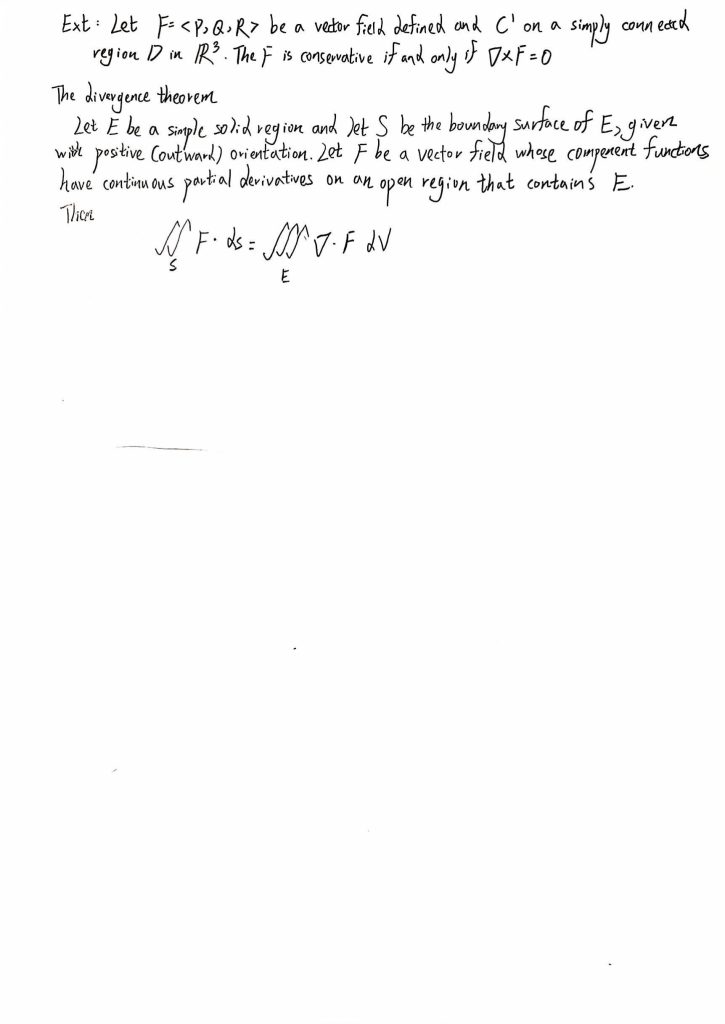 Ext: Let F=<P,Q,R> be a vector field defined and C' on a simply connected
region D in ℝ³. The F is conservative if and only if ∇×F=0
The divergence theorem
Let E be a simple solid region and let S be the boundary surface of E, given
with positive (outward) orientation. Let F be a vector field whose component functions
have continuous partial derivatives on an open region that contains E.
Then
∬_S F·ds = ∭_E ∇·F dV